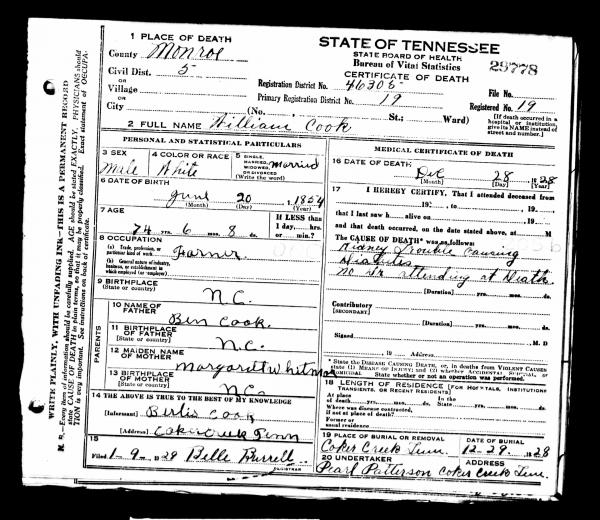 1 PLACE OF DEATH
County Monroe
Civil Dist. 5
OR
Village
OR
City (No. , St.; Ward)
2 FULL NAME William Cook
STATE OF TENNESSEE
STATE BOARD OF HEALTH
Bureau of Vital Statistics
CERTIFICATE OF DEATH
23778
Registration District No. 46305
File No.
Primary Registration District No. 19
Registered No. 19
[If death occurred in a hospital or institution, give its NAME instead of street and number.]
PERSONAL AND STATISTICAL PARTICULARS
3 SEX Male
4 COLOR OR RACE White
5 SINGLE, MARRIED, WIDOWED, OR DIVORCED (Write the word) Married
6 DATE OF BIRTH
June 20 1854
(Month) (Day) (Year)
7 AGE
74 yrs. 6 mos. 8 ds.
If LESS than 1 day, hrs. or min.?
8 OCCUPATION
(a) Trade, profession, or particular kind of work Farmer
(b) General nature of industry, business, or establishment in which employed (or employer)
9 BIRTHPLACE
(State or country) N.C.
PARENTS
10 NAME OF FATHER Ben Cook
11 BIRTHPLACE OF FATHER
(State or country) N.C.
12 MAIDEN NAME OF MOTHER Margarett Whitman
13 BIRTHPLACE OF MOTHER
(State or country) N.C.
14 THE ABOVE IS TRUE TO THE BEST OF MY KNOWLEDGE
(Informant) Bertis Cook
(Address) Coker Creek Tenn
15
Filed 1-9 1929 Belle Burrell
REGISTRAR
MEDICAL CERTIFICATE OF DEATH
16 DATE OF DEATH
Dec 28 1928
(Month) (Day) (Year)
17 I HEREBY CERTIFY, That I attended deceased from
19 , to 19
that I last saw h alive on 19
and that death occurred, on the date stated above, at M
The CAUSE OF DEATH* was as follows:
Kidney Trouble causing
Diabetes
no Dr attending at Death
(Duration) yrs. mos. ds.
Contributory
(SECONDARY)
(Duration) yrs. mos. ds.
Signed M. D
19 Address
* State the DISEASE CAUSING DEATH, or, in deaths from VIOLENT CAUSES state (1) MEANS OF INJURY; and (2) whether ACCIDENTAL, SUICIDAL, or HOMICIDAL. State whether or not an operation was performed.
18 LENGTH OF RESIDENCE (FOR HOSPITALS, INSTITUTIONS TRANSIENTS, OR RECENT RESIDENTS)
At place of death yrs. mos. ds. State yrs. mos. ds.
Where was disease contracted,
if not at place of death?
Former or
usual residence
19 PLACE OF BURIAL OR REMOVAL
Coker Creek Tenn
DATE OF BURIAL
12-29 1928
20 UNDERTAKER
Pearl Patterson
ADDRESS
Coker Creek Tenn
WRITE PLAINLY, WITH UNFADING INK—THIS IS A PERMANENT RECORD
N. B.—Every item of information should be carefully supplied. AGE should be stated EXACTLY. PHYSICIANS should state CAUSE OF DEATH in plain terms, so that it may be properly classified. Exact statement of OCCUPATION is very important. See instructions on back of certificate.